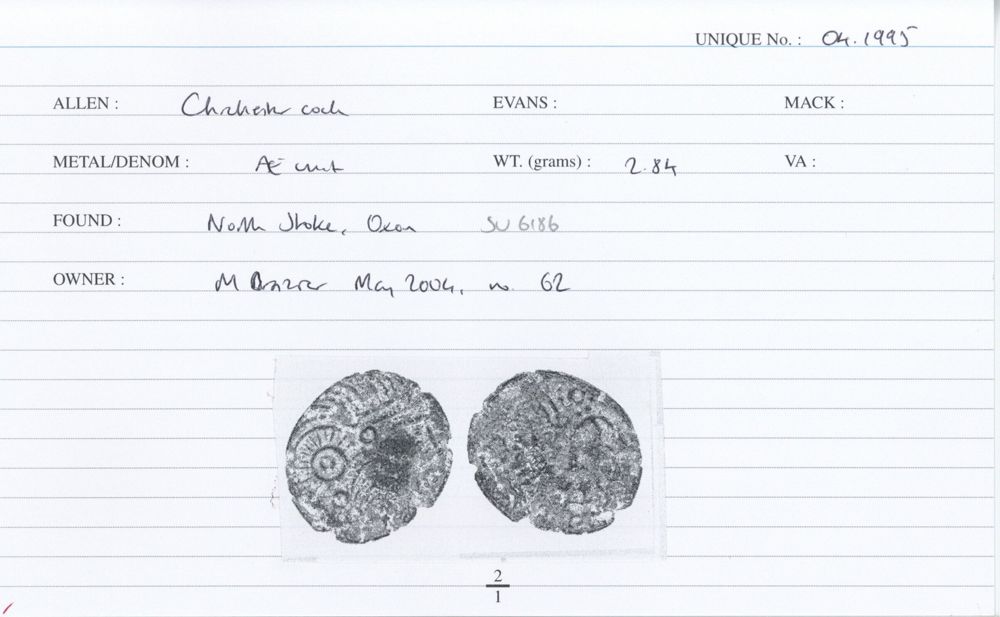 UNIQUE No. : 04.1995
ALLEN : Chichester cock EVANS : MACK :
METAL/DENOM : Æ unit WT. (grams) : 2.84 VA :
FOUND : North Stoke, Oxon SU 6186
OWNER : M May 2004, no. 62
2
1